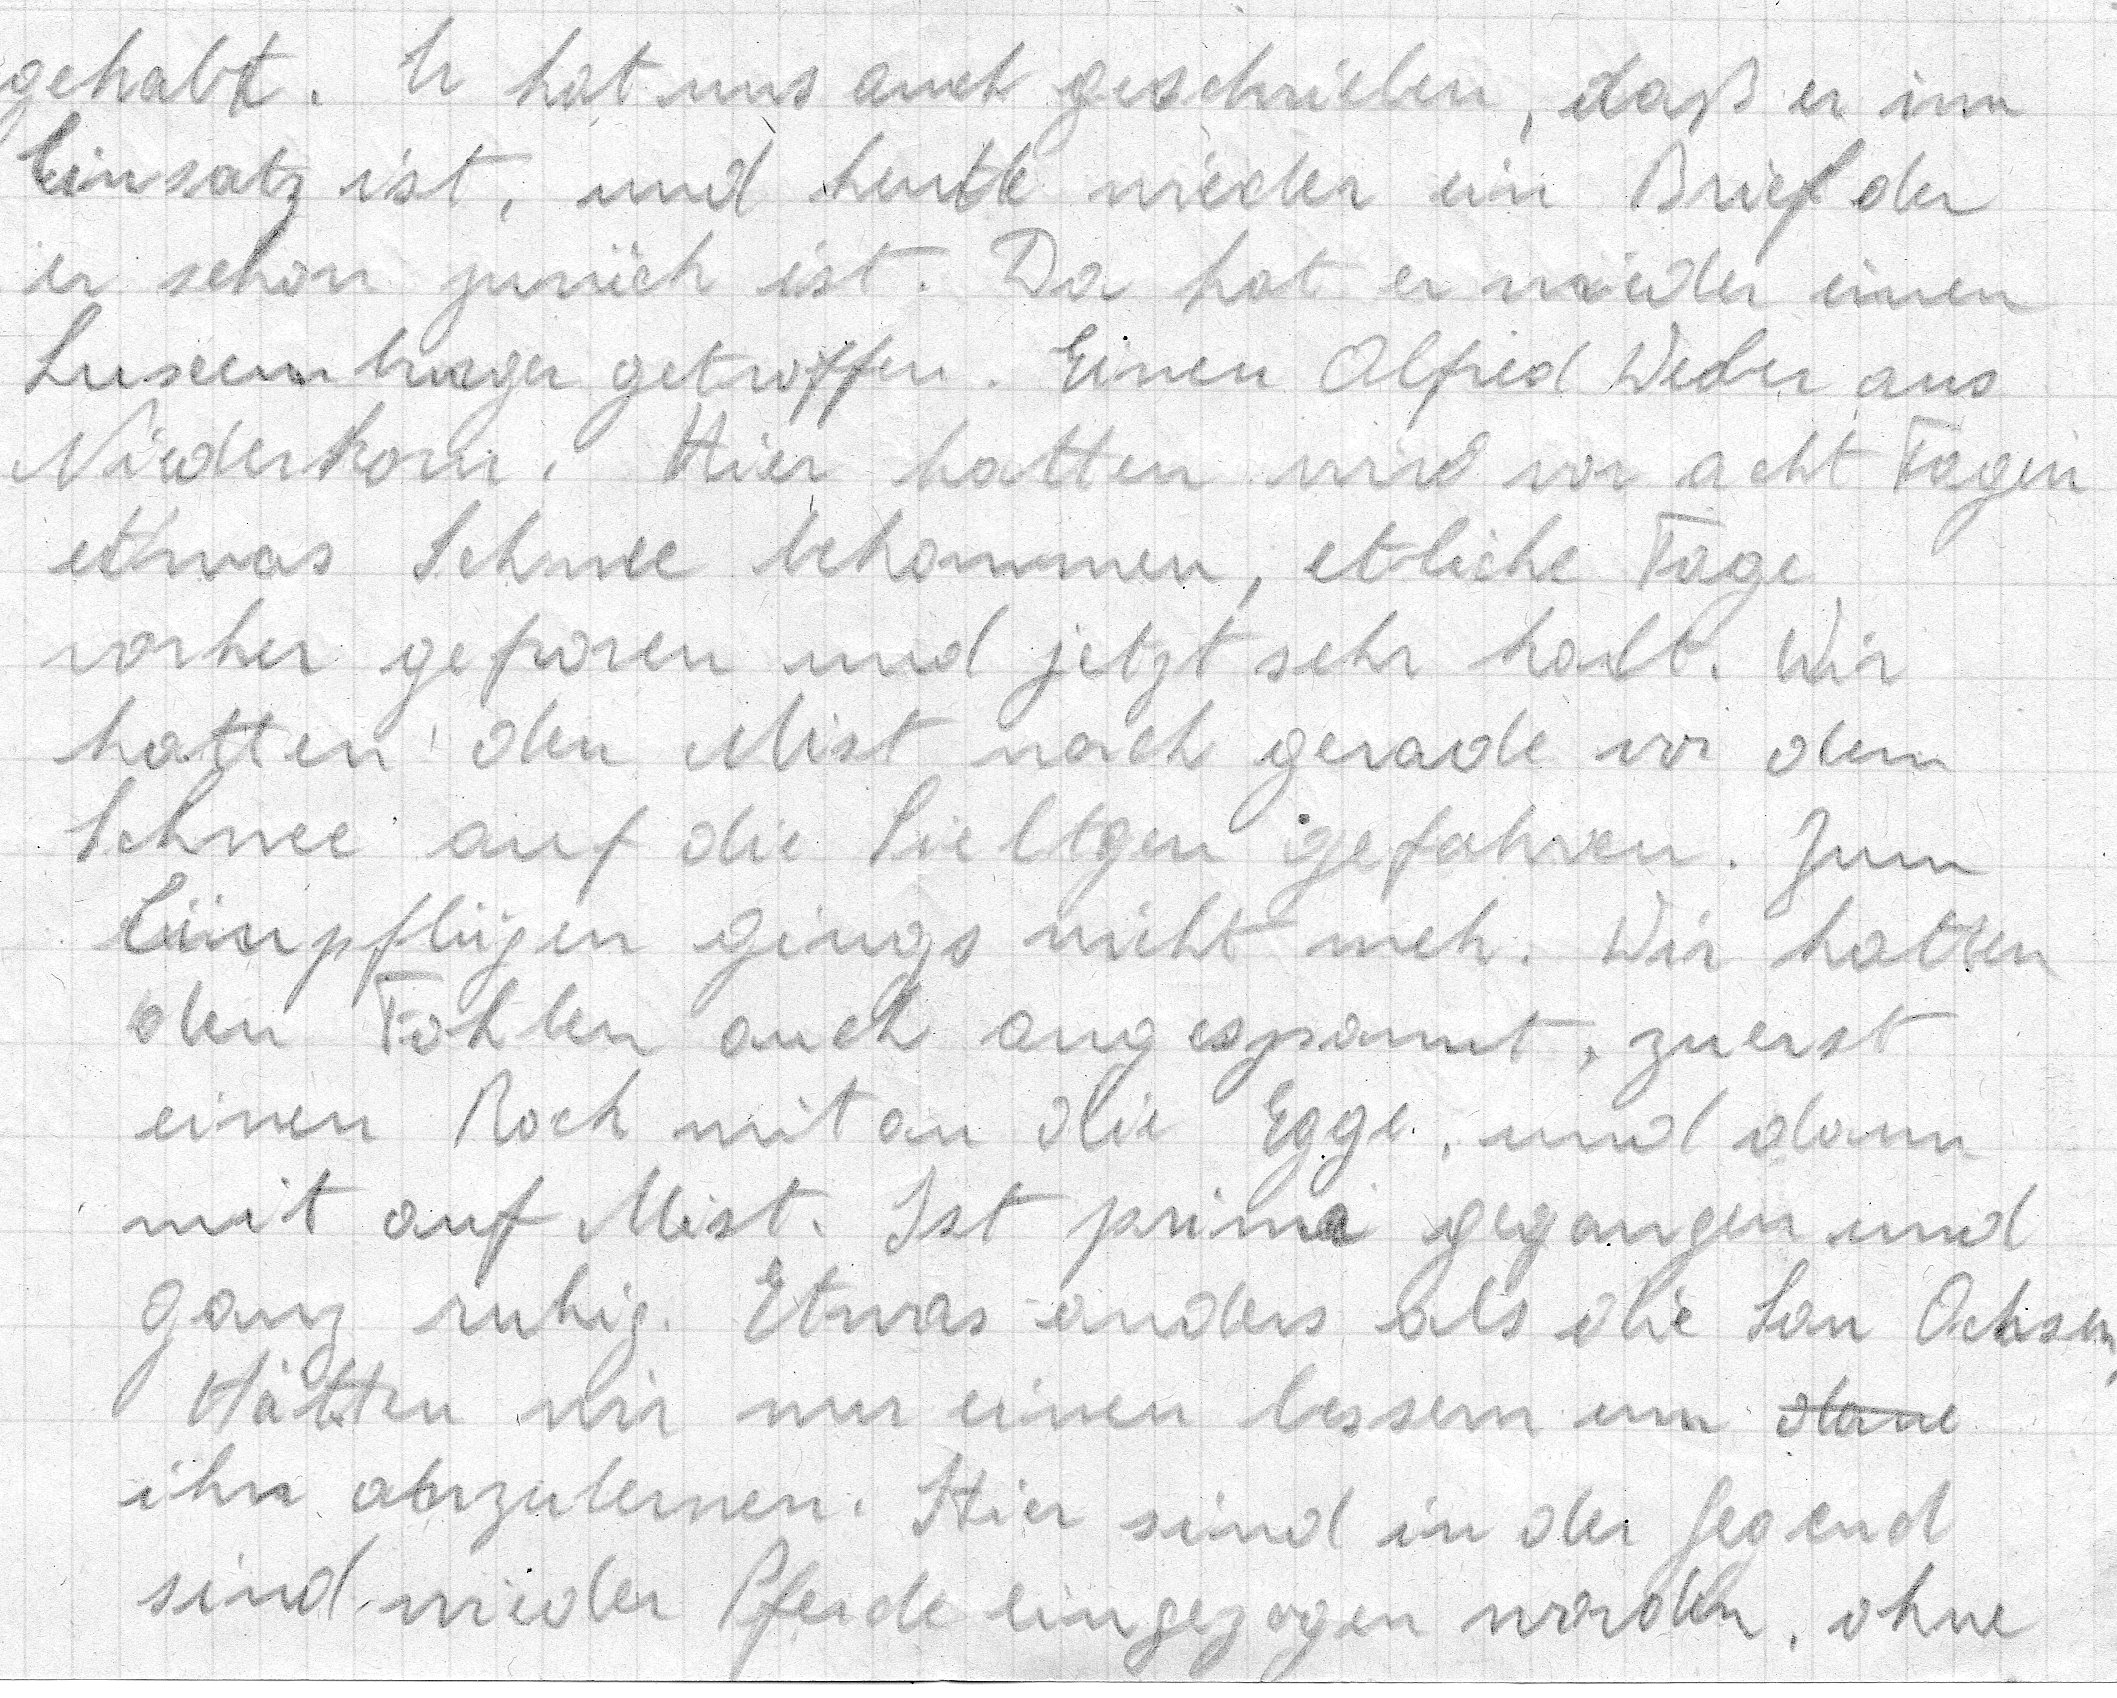 gehabt. Er hat uns auch geschrieben, daß er im
Einsatz ist, und heute wieder ein Brief der
er schon zurück ist. Da hat er wieder einen
Luxemburger getroffen. Einen Alfred Weber aus
Niederkorn. Hier hatten wird vor acht Tagen
etwas Schnee bekommen, etliche Tage
vorher gefroren und jetzt sehr kalt. Wir
hatten den Mist noch gerade vor dem
Schnee auf die gefahren. Zum
Einpflügen gings nicht meh. Wir hatten
den Fohlen auch angespannt, zuerst
einen Rock mit an die Egge, und dann
mit auf Mist. Ist prima gegangen und
ganz ruhig. Etwas anders als die Sau Ochsen,
Hätten wir nur einen bessern um
ihn anzulernen. Hier sind in der Gegend
sind wieder Pferde eingezogen worden, ohne